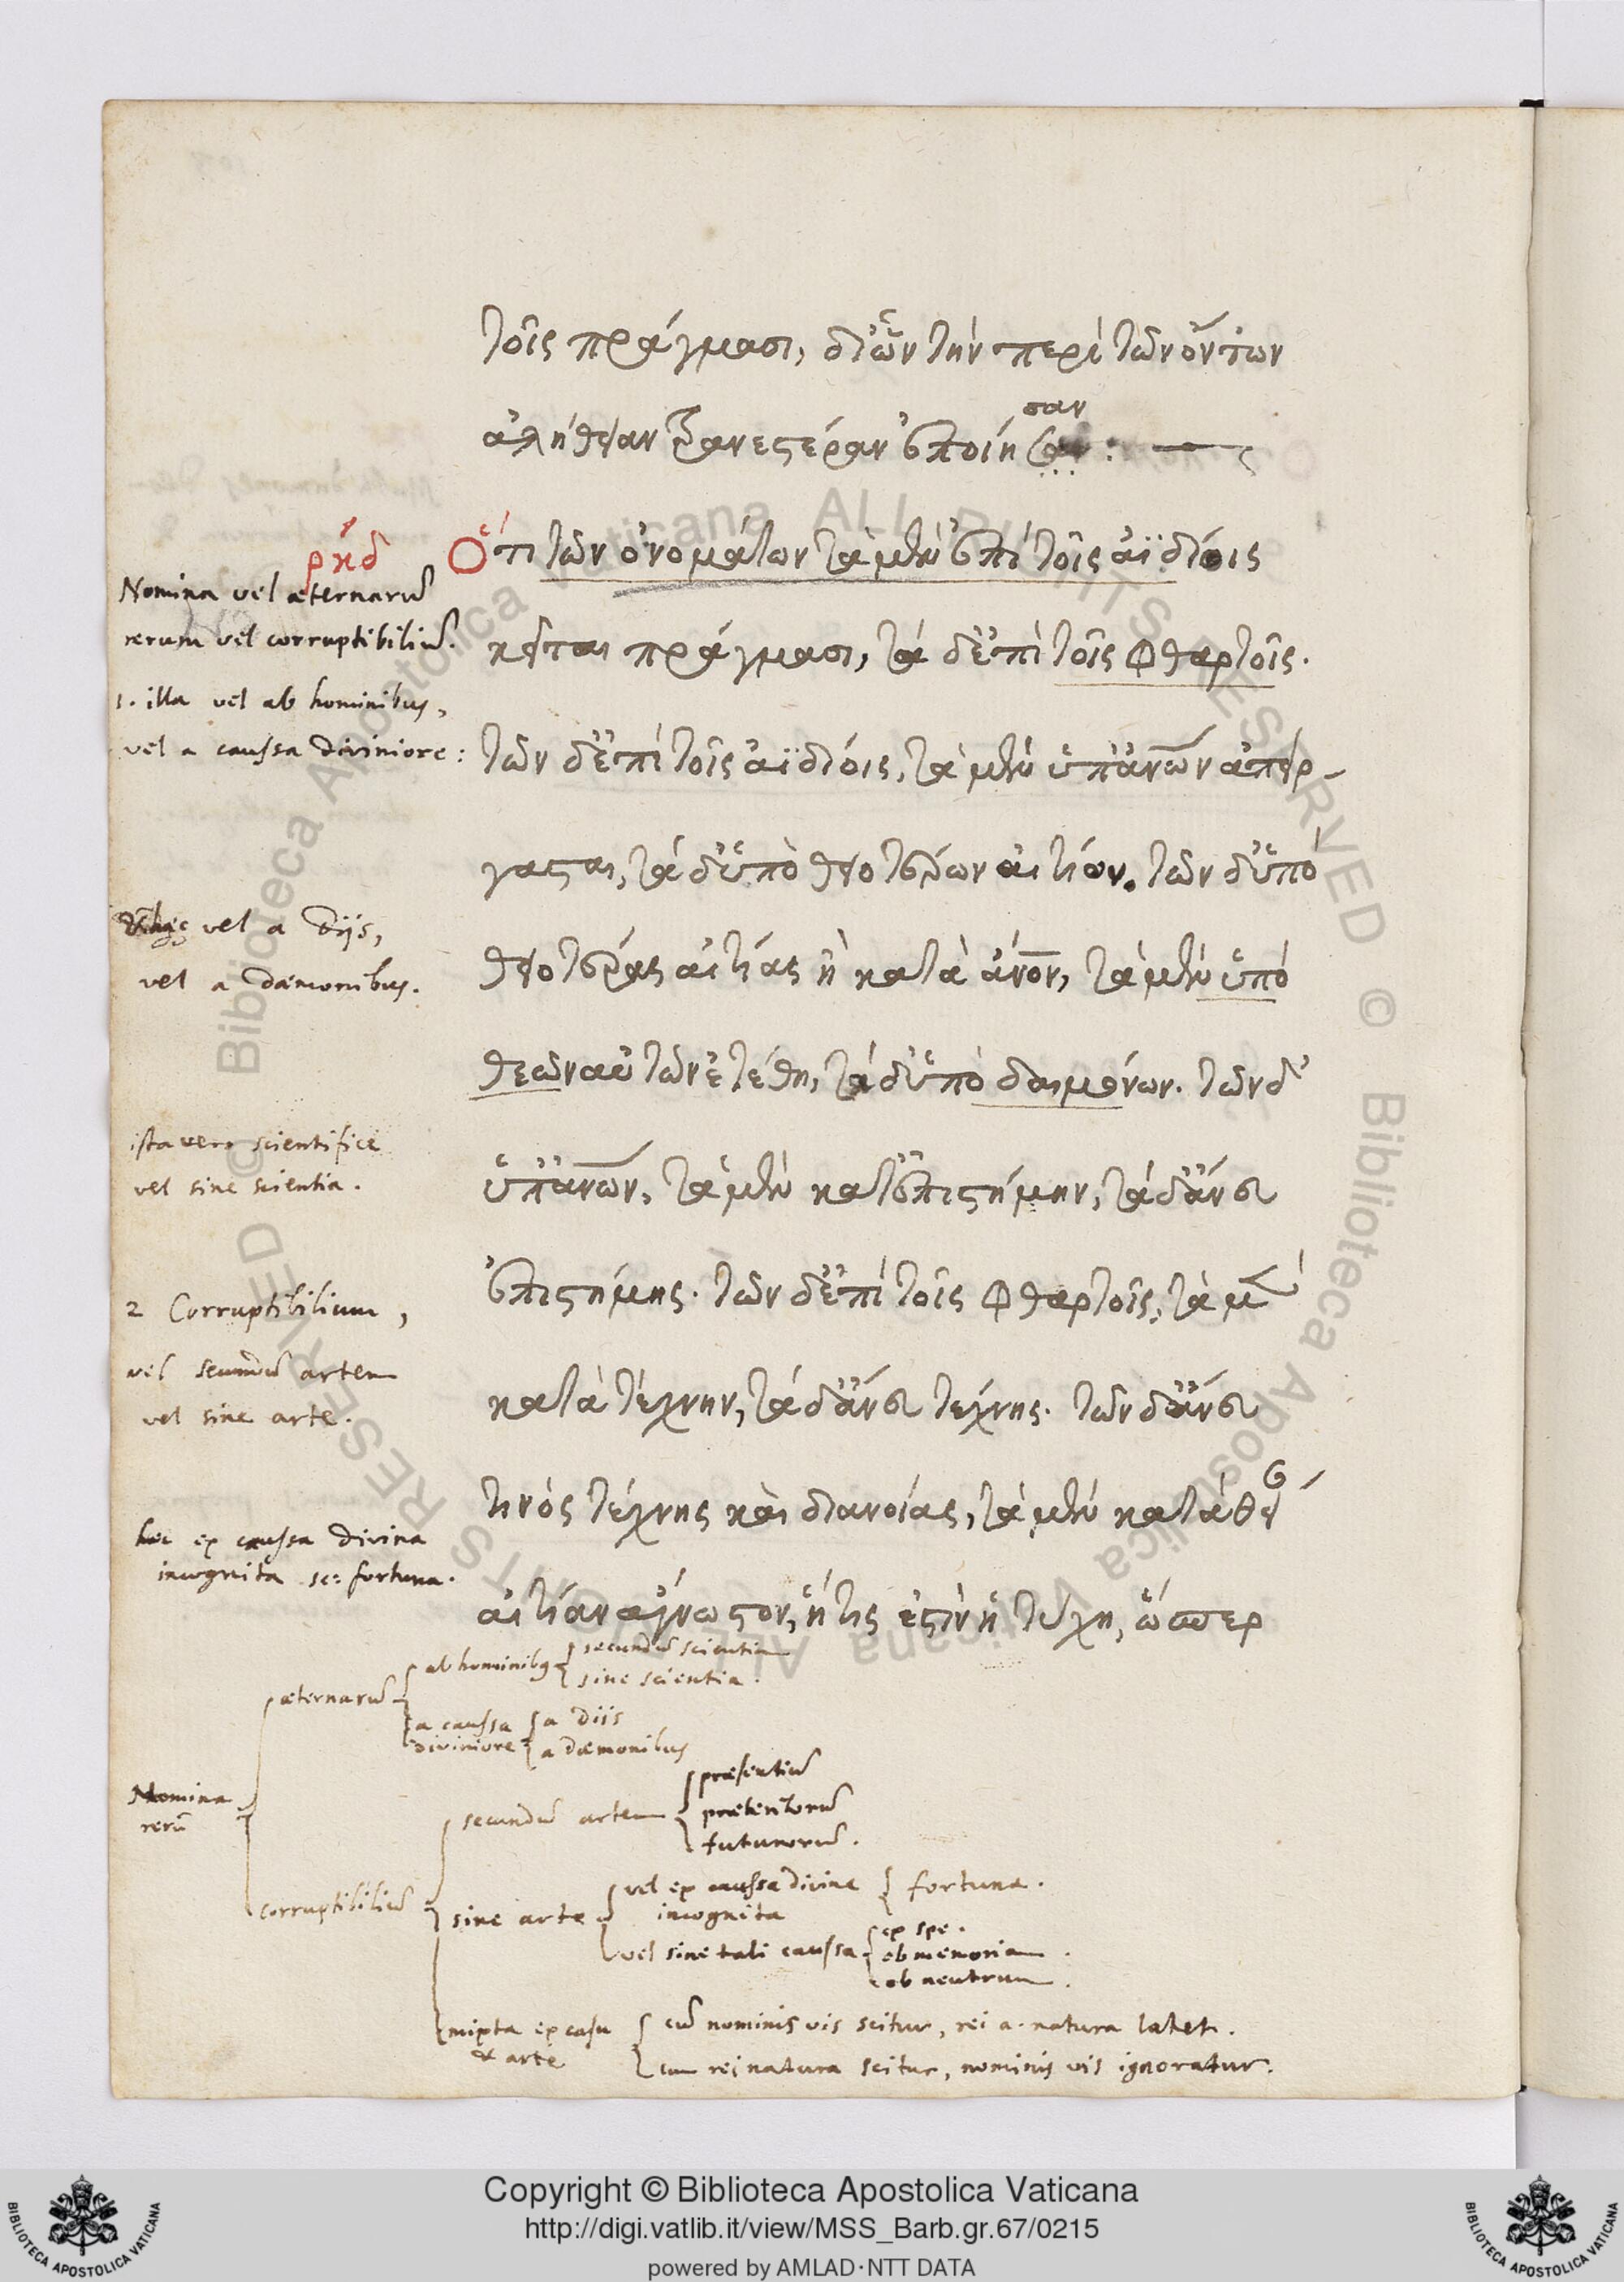 τοῖς πράγμασι, δι' ὧν τὴν περὶ τῶν ὄντων
ἀλήθειαν φανεστέραν ἐποίησαν :
ρκδ
Ὅτι τῶν ὀνομάτων τὰ μὲν ἐπὶ τοῖς ἀϊδίοις
κεῖται πράγμασι, τὰ δ' ἐπὶ τοῖς φθαρτοῖς.
τῶν δ' ἐπὶ τοῖς ἀϊδίοις, τὰ μὲν ὑπ' ἀνων ἀπείρ-
γασται, τὰ δ' ὑπὸ θειοτέρων αἰτίων. τῶν δ' ὑπὸ
θειοτέρας αἰτίας ἢ κατὰ ἄνον, τὰ μὲν ὑπὸ
θεῶν αὐτῶν ἐτέθη, τὰ δ' ὑπὸ δαιμόνων. τῶν δ'
ὑπ' ἀνων, τὰ μὲν κατ' ἐπιστήμην, τὰ δ' ἄνευ
ἐπιστήμης. τῶν δ' ἐπὶ τοῖς φθαρτοῖς, τὰ μὲν
κατὰ τέχνην, τὰ δ' ἄνευ τέχνης. τῶν δ' ἄνευ
τινὸς τέχνης καὶ διανοίας, τὰ μὲν κατὰ θεί
αἰτίαν ἄγνωστον, ἥτις ἐστὶν ἡ τύχη, ὥσπερ
Nomina vel æternarū
rerum vel corruptibiliū.
1. illa vel ab hominibus,
vel a caussa diviniore:
vel a Diis,
vel a dæmonibus.
ista vero scientifice
vel sine scientia.
2 Corruptibilium,
vel secundū artem
vel sine arte.
hæc ex caussa divina
incognita sc: fortuna.
Nomina
rerū
æternarū
ab hominibus
secundū scientiam
sine scientia.
a caussa
diviniore
a Diis
a dæmonibus
corruptibiliū
secundū artem
præsentiū
præteritorū
futurorū.
sine arte
vel ex caussa divina
incognita
fortuna.
vel sine tali caussa
ex spe.
ob memoriam.
ob neutrum.
mixta ex casu
& arte
cū nominis vis scitur, rei a. natura latet.
cum rei natura scitur, nominis vis ignoratur.
Copyright © Biblioteca Apostolica Vaticana
http://digi.vatlib.it/view/MSS_Barb.gr.67/0215
powered by AMLAD·NTT DATA
BIBLIOTECA APOSTOLICA VATICANA
BIBLIOTECA APOSTOLICA VATICANA
© Biblioteca Apostolica Vaticana ALL RIGHTS RESERVED © Biblioteca Apostolica Vaticana ALL RIGHTS RESERVED